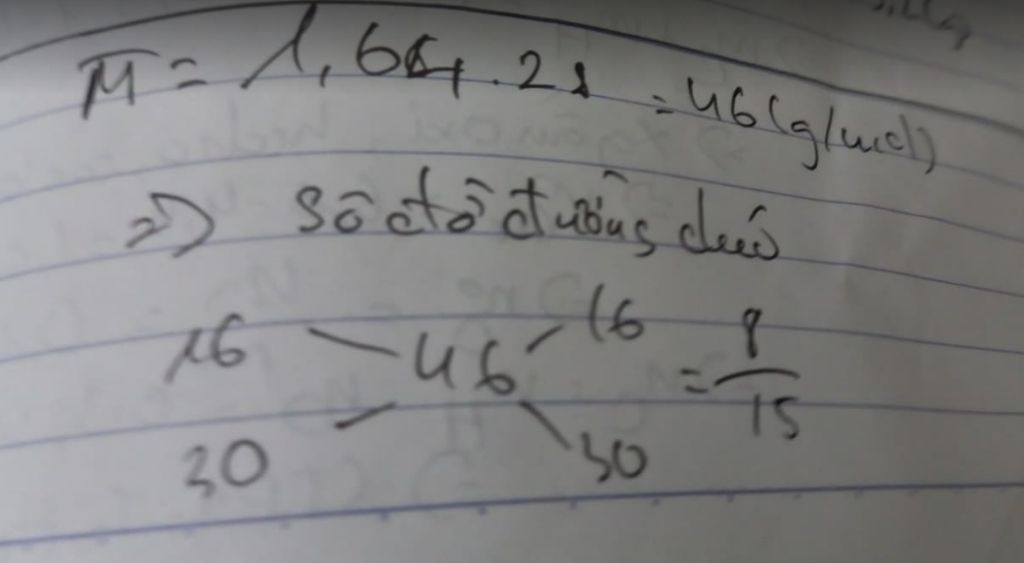 M̄ = 1,64.28 = 46 (g/mol)
=> Sơ đồ đường chéo
16 46 16 = 8/15
30 30